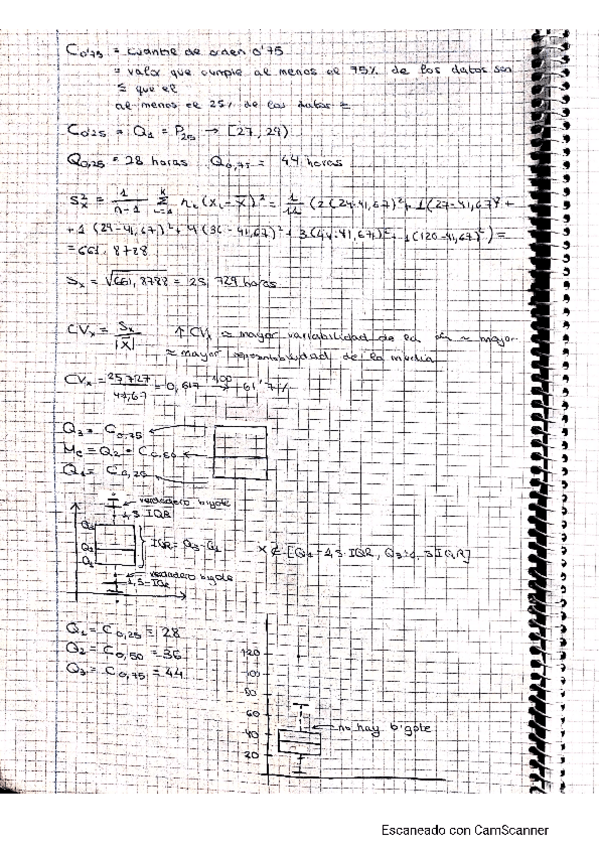 C0'75 = cuantil de orden 0'75
= valor que cumple al menos el 75% de los datos son
≤ que el
al menos el 25% de los datos ≥
C0'25 = Q1 = P25 → [27, 29)
Q0,25 = 28 horas Q0,75 = 44 horas
S²x = 1/(n-1) Σ ni (xi - x̄)² = 1/11 (2(24-41,67)² + 1(27-41,67)² +
+ 1 (29-41,67)² + 4(36-41,67)² + 3(44-41,67)² + 1(120-41,67)²) =
= 661,8788
Sx = √661,8788 = 25,729 horas
CVx = Sx/|x̄| ↑CVx = mayor variabilidad de la = mayor
= mayor de la media
CVx = 25,727/41,67 = 0,617 →100 61'7%
Q3 = C0,75
Me = Q2 = C0,50
Q1 = C0,25
verdadero bigote
1,5 IQR
Q3
Q2
Q1
IQR = Q3 - Q1
x ∉ [Q1 - 1,5·IQR, Q3 + 1,5 IQR]
verdadero bigote
1,5·IQR
Q1 = C0,25 = 28
Q2 = C0,50 = 36
Q3 = C0,75 = 44
120
100
80
60
40
20
no hay bigote
Escaneado con CamScanner